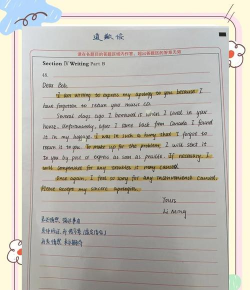 道歉信
请在各题目的答题区域内作答，超出答题区域的答案无效
Section IV Writing Part B
Dear Bob,
I am writing to express my apology to you because I
have forgotten to return your music CD.
Several days ago I borrowed it when I lived in your
house. Unfortunately, after I came back from Canada I found
it in my luggage. I was in such a hurry that I forgot to
return it to you. To make up for the problem, I will send it
to you by post or express as soon as possible. If necessary, I
will compensate for any troubles it may caused.
Once again, I feel so sorry for any inconvenience caused.
Please accept my sincere apologies.
Yours
Li Ming